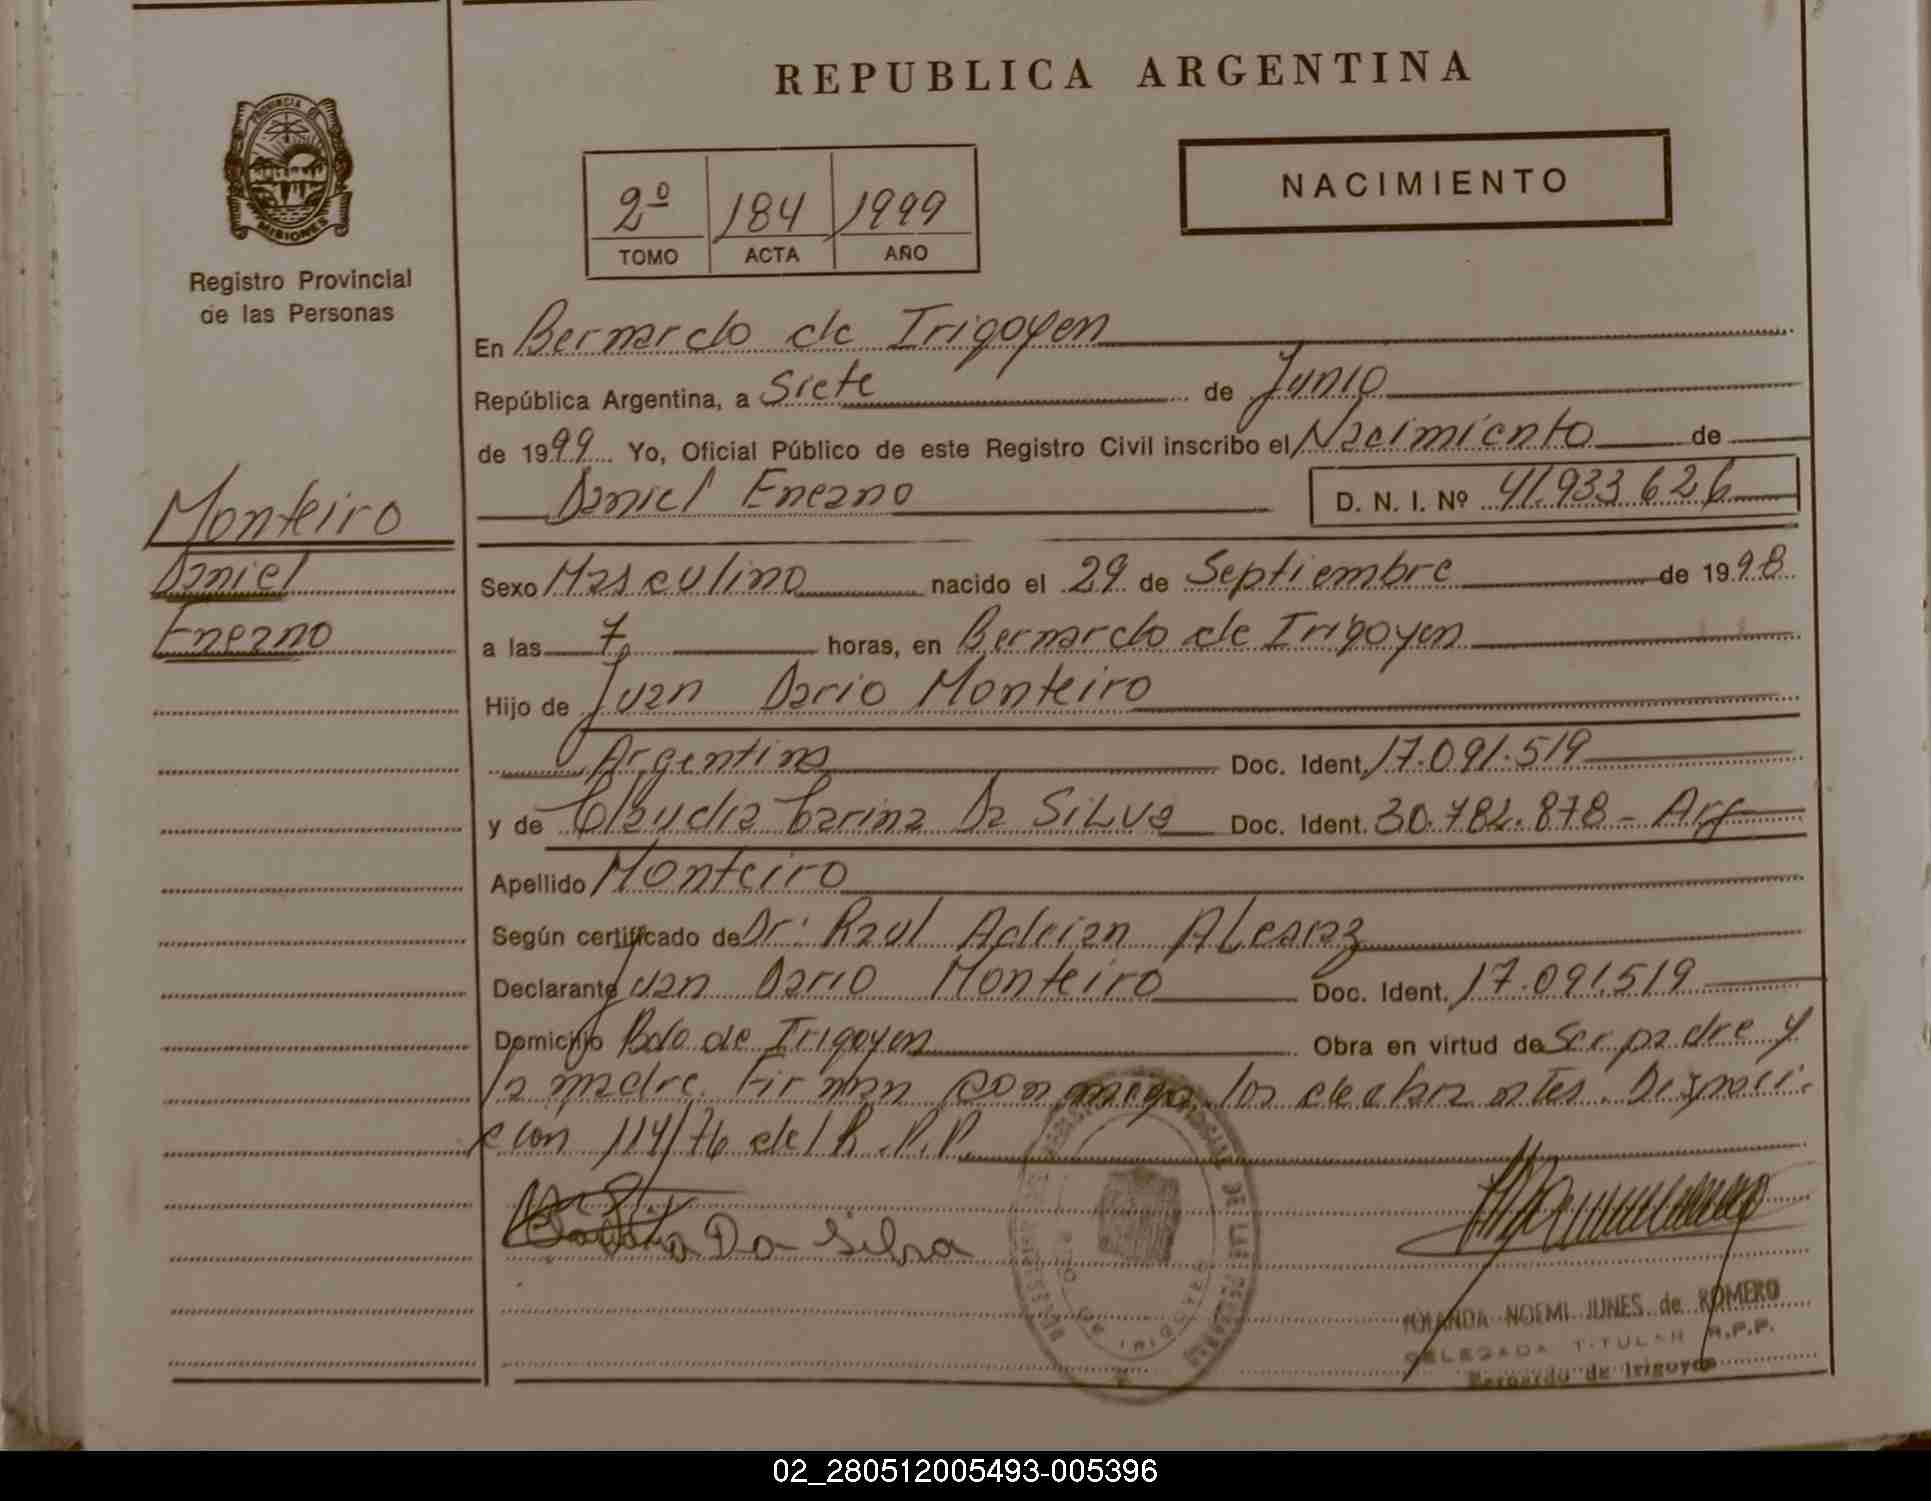 REPUBLICA ARGENTINA
PROVINCIA DE
MISIONES
Registro Provincial
de las Personas
2º 184 1999
TOMO ACTA AÑO
NACIMIENTO
En Bernardo de Irigoyen
República Argentina, a Siete de Junio
de 1999 Yo, Oficial Público de este Registro Civil inscribo el Nacimiento de
Daniel Eneano D. N. I. Nº 41.933.626
Monteiro
Daniel
Eneano
Sexo Masculino nacido el 29 de Septiembre de 1998
a las 7 horas, en Bernardo de Irigoyen
Hijo de Juan Dario Monteiro
Argentina Doc. Ident. 17.091.519
y de Claudia Carina Da Silva Doc. Ident. 30.782.878 - Arg
Apellido Monteiro
Según certificado de Dr: Raul Adrian Alcaraz
Declarante Juan Dario Monteiro Doc. Ident. 17.091.519
Domicilio Bdo de Irigoyen Obra en virtud de Ser padre y
la madre. Firman conmigo los declarantes. Disposici-
cion 114/76 del R.P.P.
Claudia Da Silva
YOLANDA NOEMI JUNES de ROMERO
DELEGADA TITULAR R.P.P.
Bernardo de Irigoyen
02_280512005493-005396